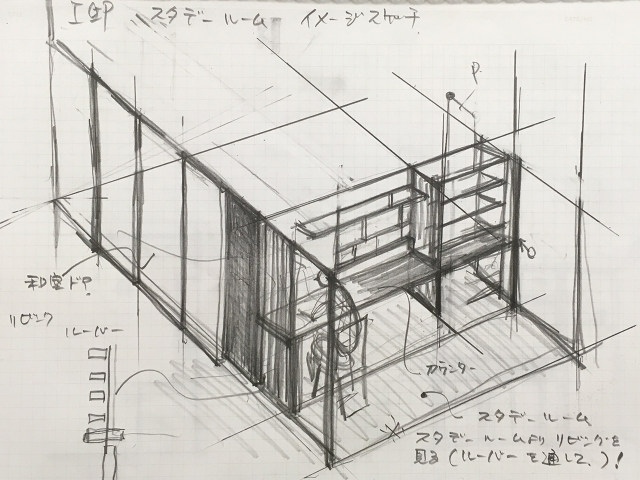 I邸 スタデールーム イメージスケッチ
P.
和室ドア
リビング
ルーバー
カウンター
スタデールーム
スタデールームよりリビングを
見る(ルーバーを通して、)!